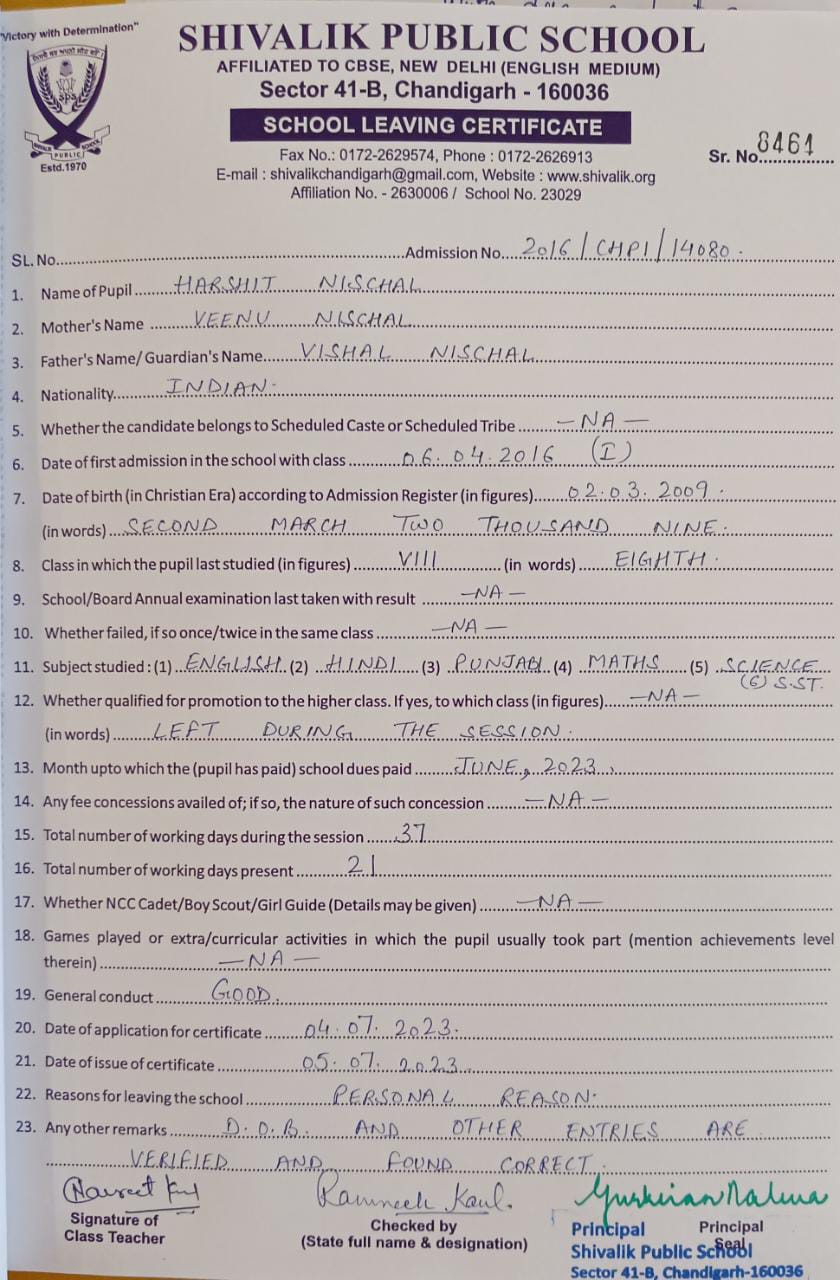 "Victory with Determination"
SHIVALIK PUBLIC SCHOOL
AFFILIATED TO CBSE, NEW DELHI (ENGLISH MEDIUM)
Sector 41-B, Chandigarh - 160036
SCHOOL LEAVING CERTIFICATE
SPS
SHIVALIK PUBLIC SCHOOL
Estd.1970
Fax No.: 0172-2629574, Phone : 0172-2626913
Sr. No. 8461
E-mail : shivalikchandigarh@gmail.com, Website : www.shivalik.org
Affiliation No. - 2630006 / School No. 23029
SL. No. Admission No. 2016/CHPI/14080.
1. Name of Pupil HARSHIT NISCHAL
2. Mother's Name VEENU NISCHAL
3. Father's Name/ Guardian's Name VISHAL NISCHAL
4. Nationality INDIAN.
5. Whether the candidate belongs to Scheduled Caste or Scheduled Tribe -NA-
6. Date of first admission in the school with class 06.04.2016 (I)
7. Date of birth (in Christian Era) according to Admission Register (in figures) 02.03.2009.
(in words) SECOND MARCH TWO THOUSAND NINE.
8. Class in which the pupil last studied (in figures) VIII (in words) EIGHTH.
9. School/Board Annual examination last taken with result -NA-
10. Whether failed, if so once/twice in the same class -NA-
11. Subject studied : (1) ENGLISH (2) HINDI (3) PUNJABI (4) MATHS (5) SCIENCE
(6) S.ST.
12. Whether qualified for promotion to the higher class. If yes, to which class (in figures) -NA-
(in words) LEFT DURING THE SESSION.
13. Month upto which the (pupil has paid) school dues paid JUNE, 2023.
14. Any fee concessions availed of; if so, the nature of such concession -NA-
15. Total number of working days during the session 37
16. Total number of working days present 21
17. Whether NCC Cadet/Boy Scout/Girl Guide (Details may be given) -NA-
18. Games played or extra/curricular activities in which the pupil usually took part (mention achievements level
therein) -NA-
19. General conduct GOOD.
20. Date of application for certificate 04.07.2023.
21. Date of issue of certificate 05.07.2023.
22. Reasons for leaving the school PERSONAL REASON.
23. Any other remarks D.O.B. AND OTHER ENTRIES ARE
VERIFIED AND FOUND CORRECT.
Signature of
Class Teacher
Kaul.
Checked by
(State full name & designation)
Principal
Seal
Principal
Shivalik Public School
Sector 41-B, Chandigarh-160036